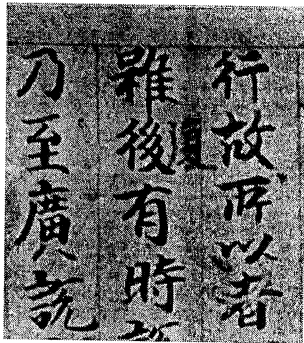 行故所以者
雖後復有時
乃至廣說